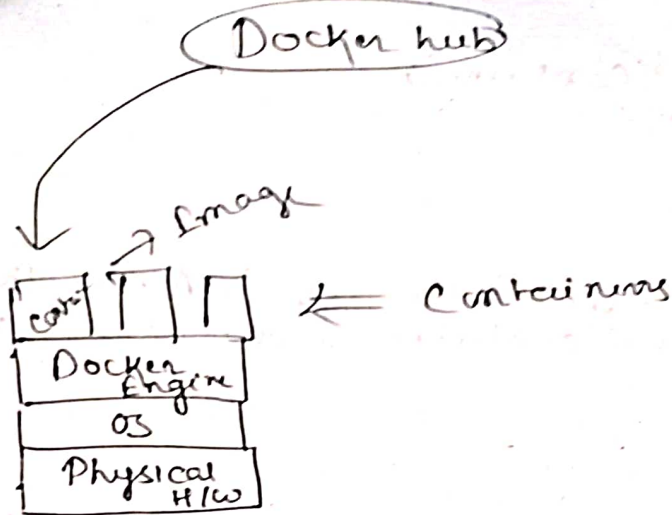 Docker hub
Image
cont
Containers
Docker
Engine
OS
Physical
H/W